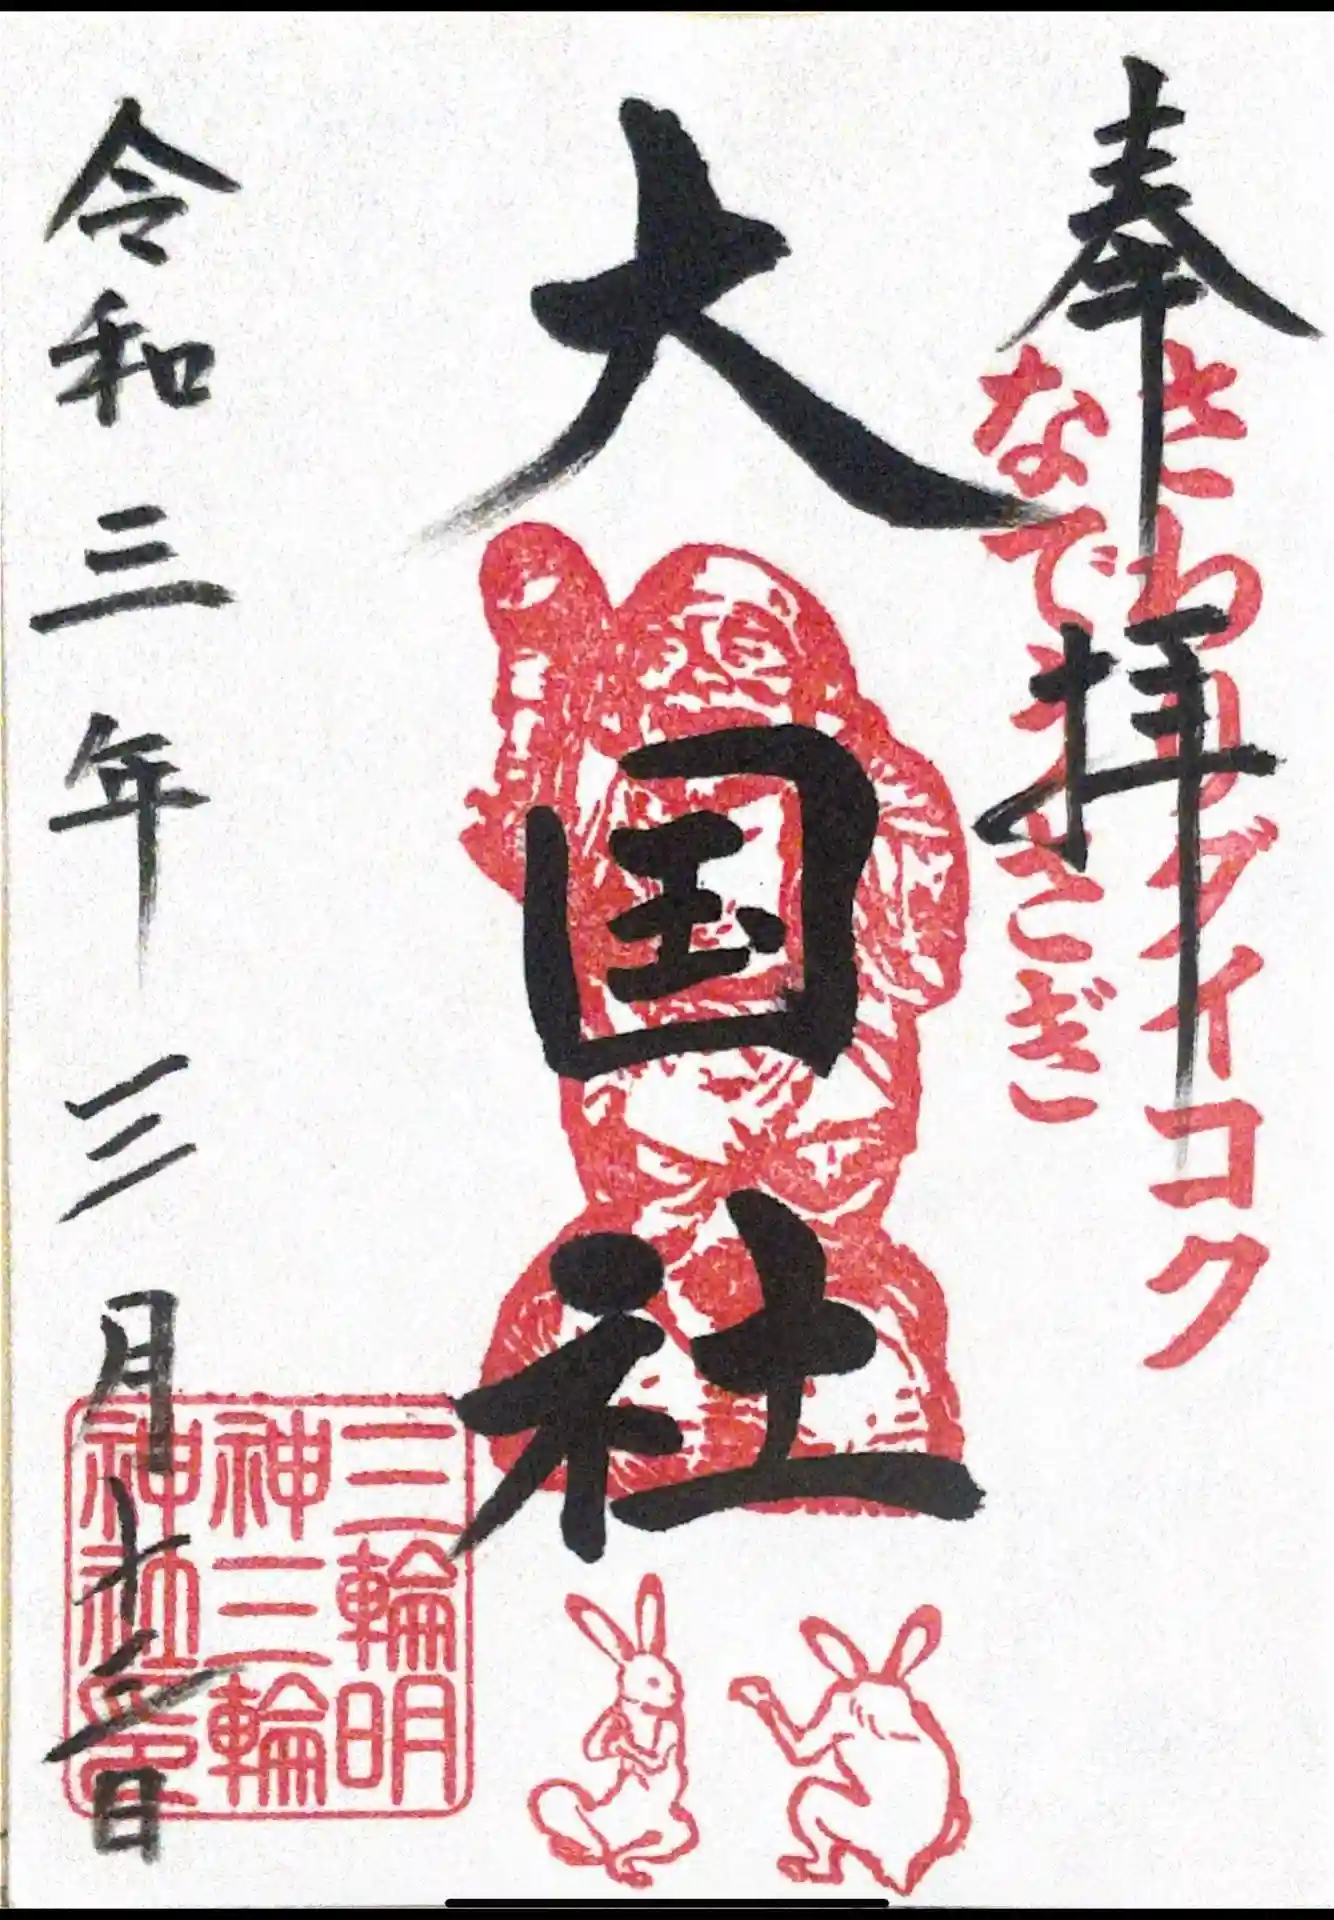 奉拝
さわりダイコク
なでうさぎ
大国社
令和三年三月十三日
三輪明
神三輪
神社印